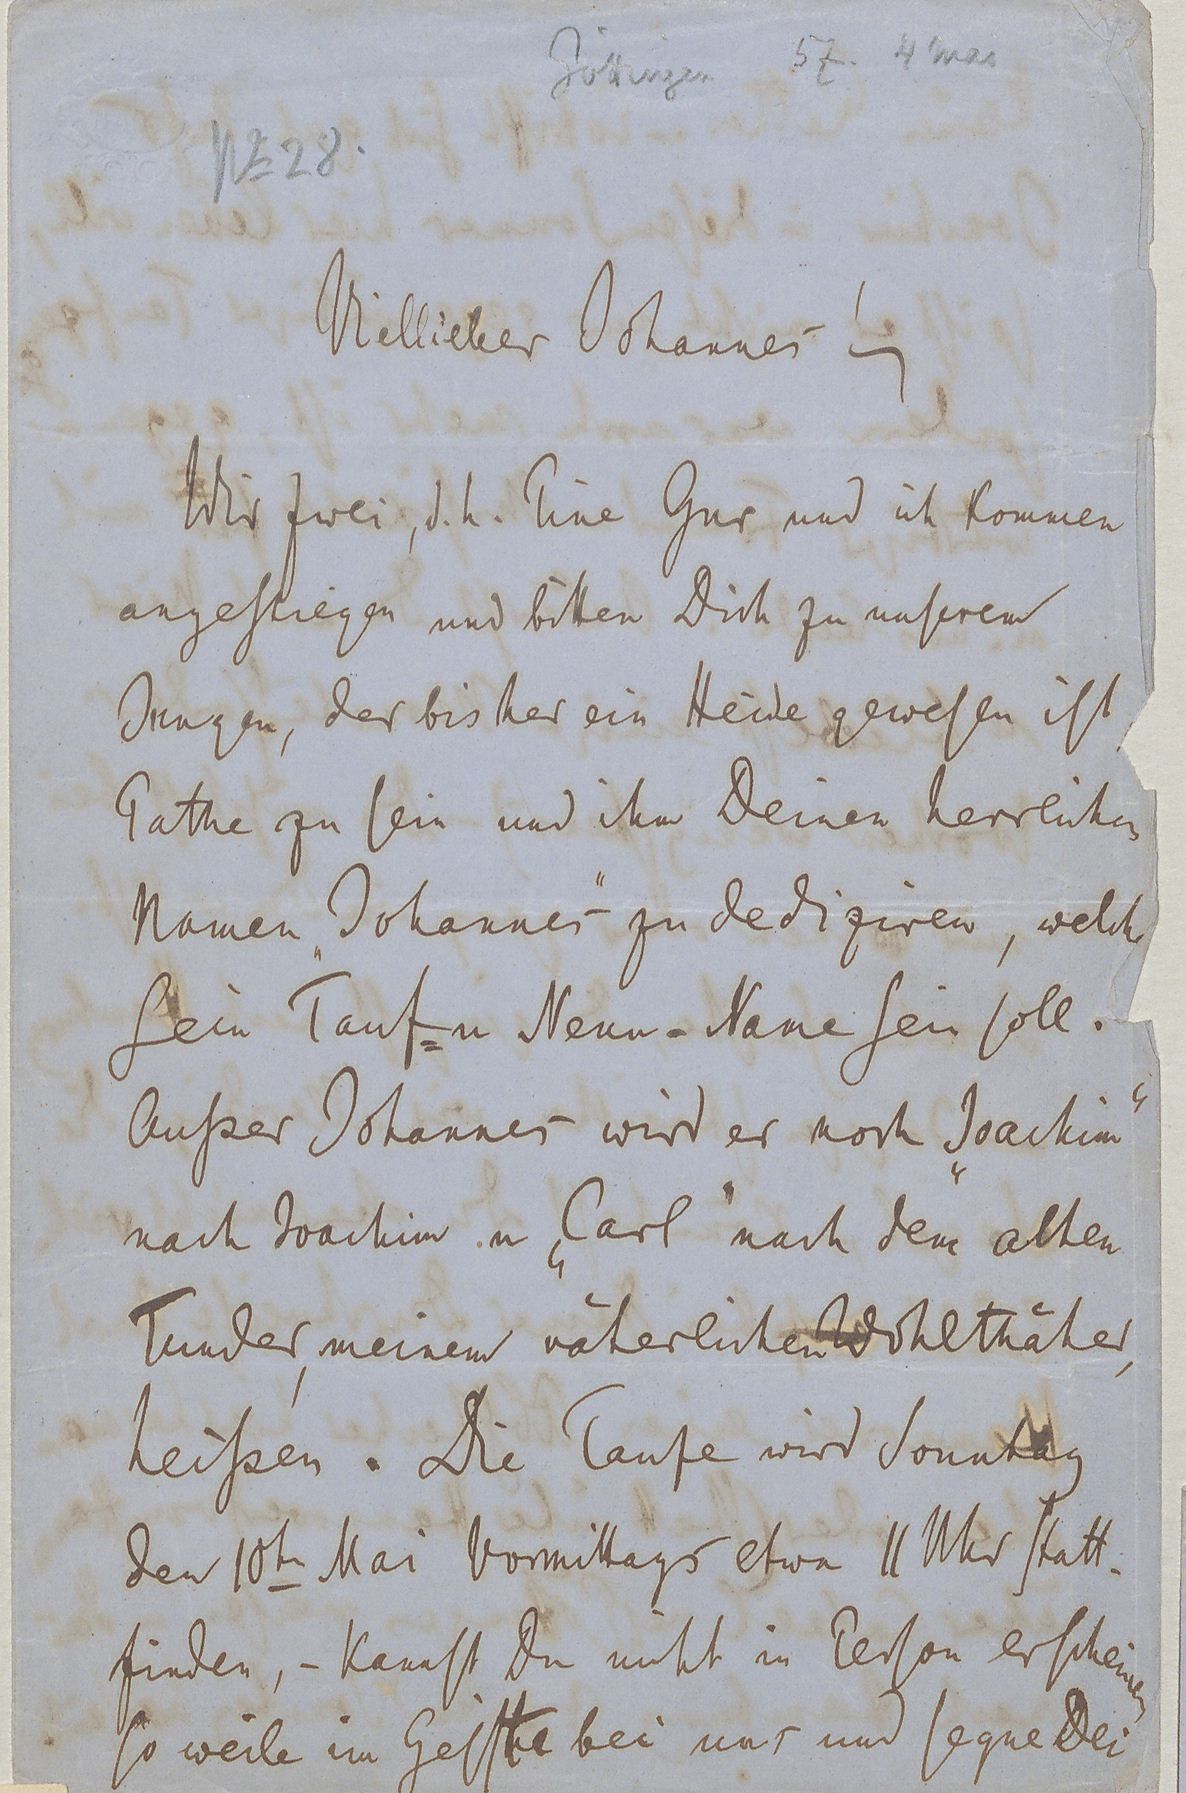 Göttingen 57. 4 Mai
No 28.
Viellieber Johannes!
Wir zwei, d.h. Pine Gur und ich kommen
angestiegen und bitten Dich zu unserem
Jungen, der bisher ein Heide gewesen ist
Pathe zu sein und ihm Deinen herrlichen
Namen „Johannes“ zu dediziren, welch
Sein Tauf= u Nenn-Name sein soll.
Außer Johannes wird er noch „Joachim“
nach Joachim u „Carl“ nach dem alten
Tunder, meinem väterlichen Wohlthäter,
heißen. Die Taufe wird Sonntag
den 10ten Mai Vormittags etwa 11 Uhr statt-
finden, – kannst Du nicht in Person erscheinen
so weile im Geiste bei uns und segne Dei